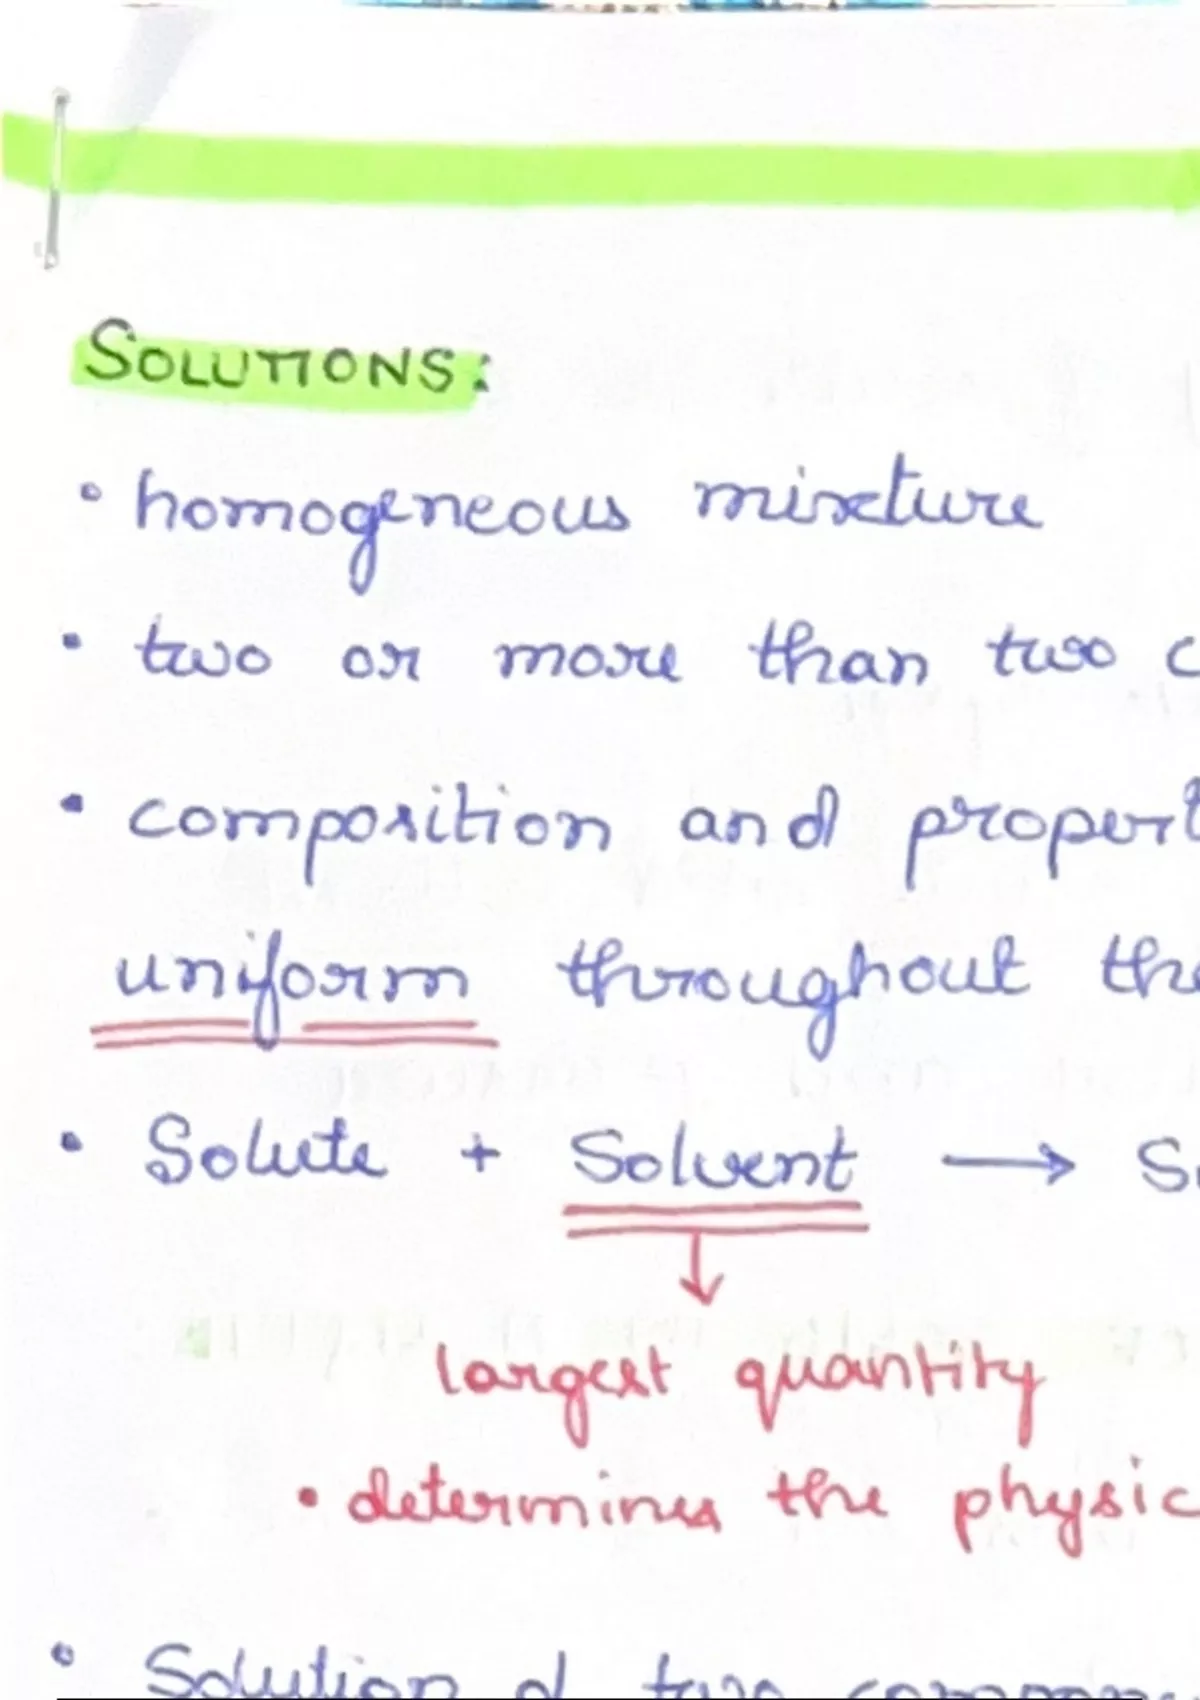 SOLUTIONS:
• homogeneous mixture
• two or more than two c
• composition and propert
uniform throughout the
• Solute + Solvent → S
↓
largest quantity
• determines the physic
• Solution of two compon